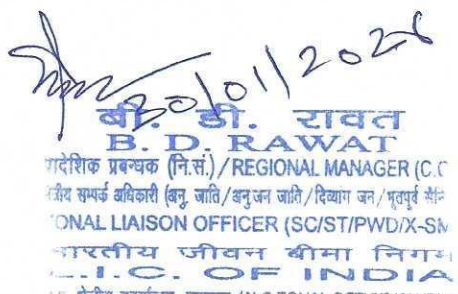 20/01/2026
बी. डी. रावत
B. D. RAWAT
ादेशिक प्रबन्धक (नि.सं.)/REGIONAL MANAGER (C.C
त्रीय सम्पर्क अधिकारी (अनु. जाति/अनुजन जाति/दिव्यांग जन/भूतपूर्व सैनि
ONAL LIAISON OFFICER (SC/ST/PWD/X-SM
भारतीय जीवन बीमा निगम
L.I.C. OF INDIA